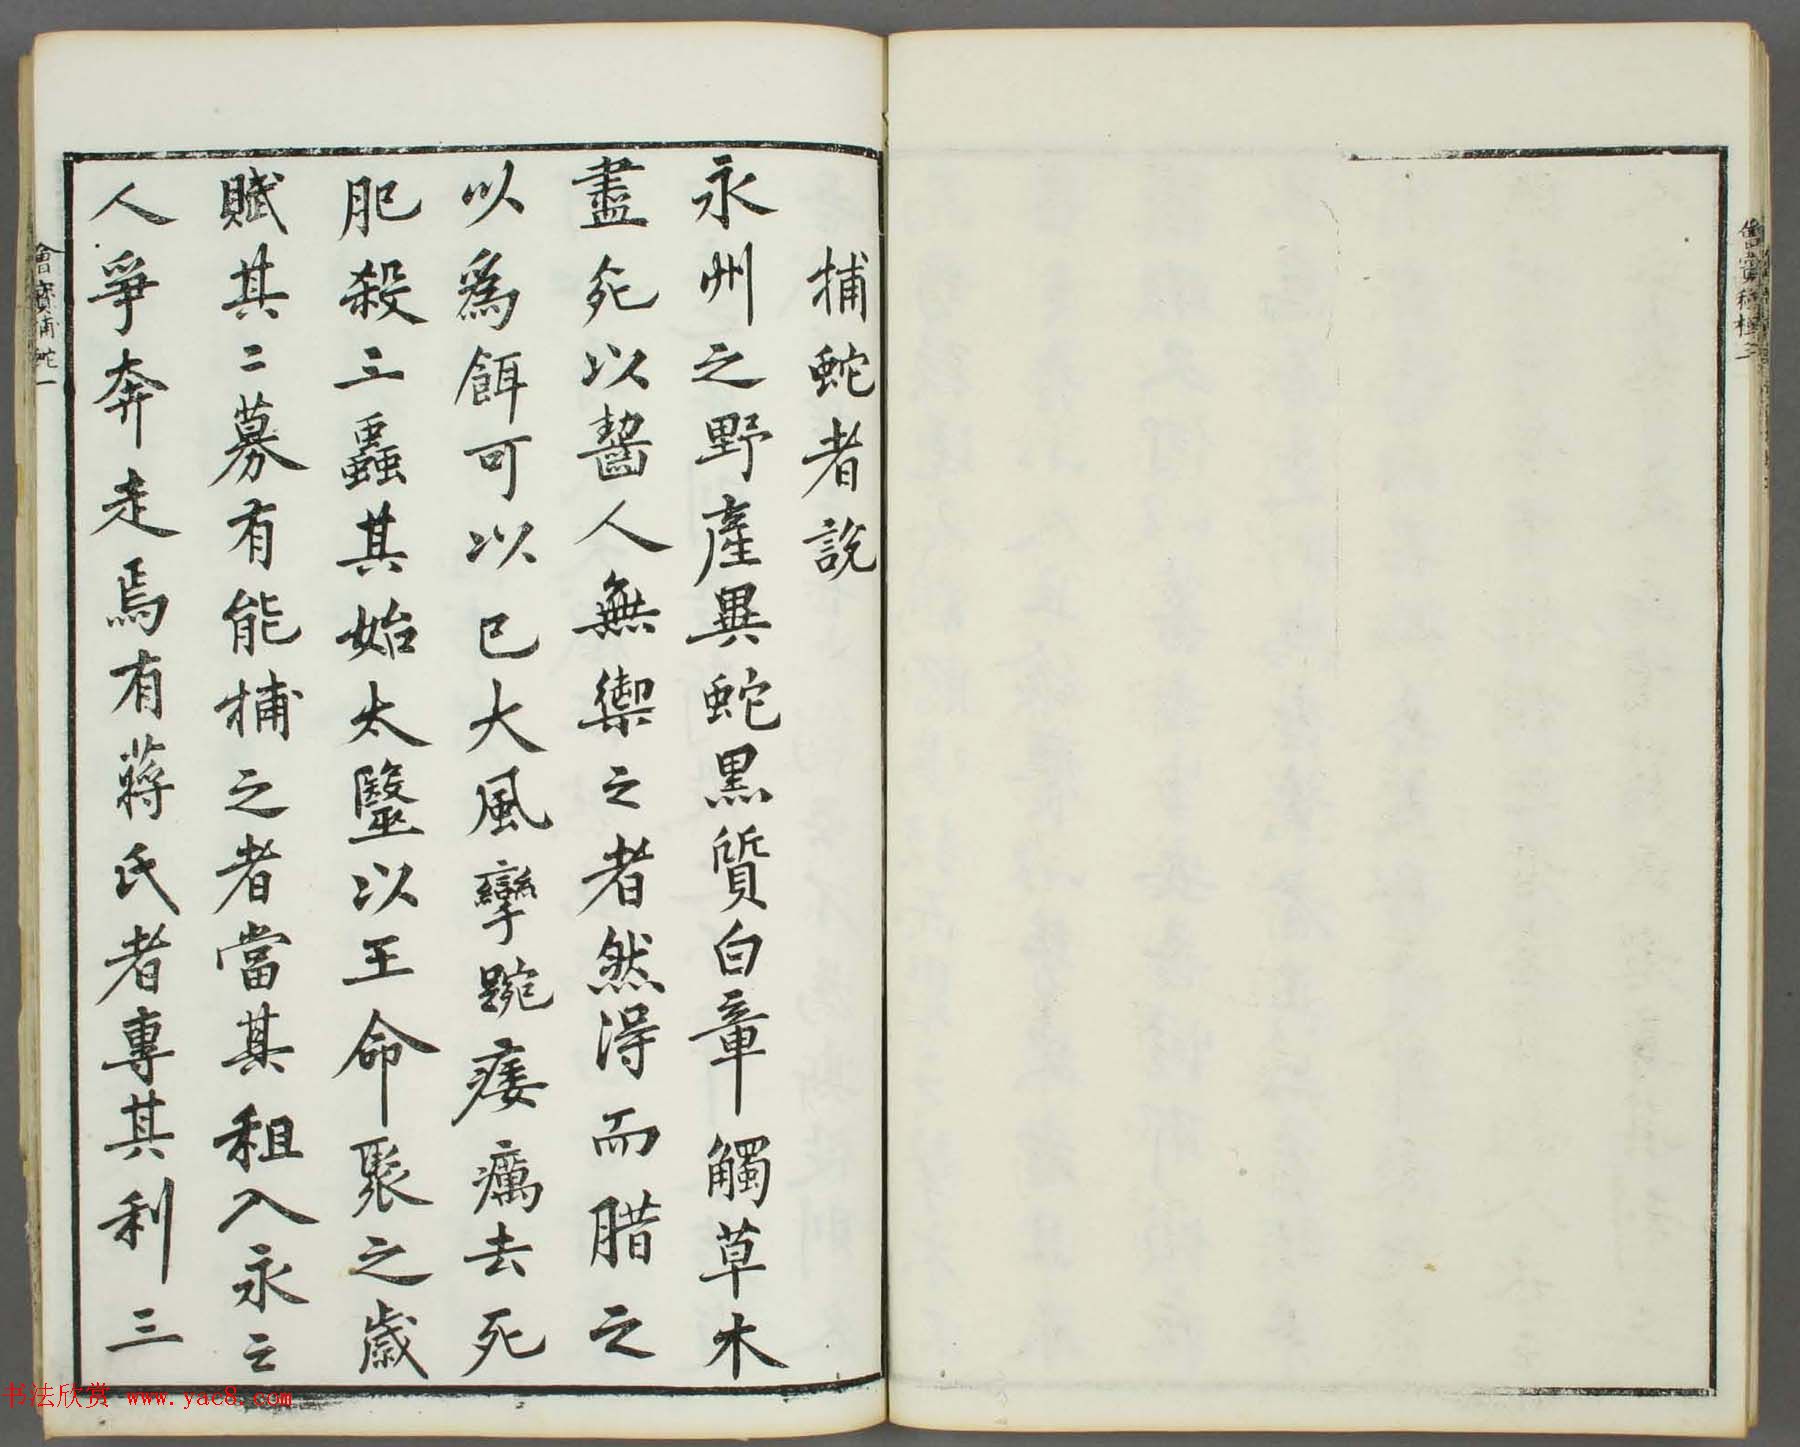 捕蛇者說
永州之野產異蛇黑質白章觸草木
盡死以齧人無禦之者然得而腊之
以爲餌可以已大風攣踠瘻癘去死
肥殺三蟲其始太毉以王命聚之歲
賦其二募有能捕之者當其租入永之
人爭奔走焉有蔣氏者專其利三
捕蛇一
书法欣赏 www.yac8.com